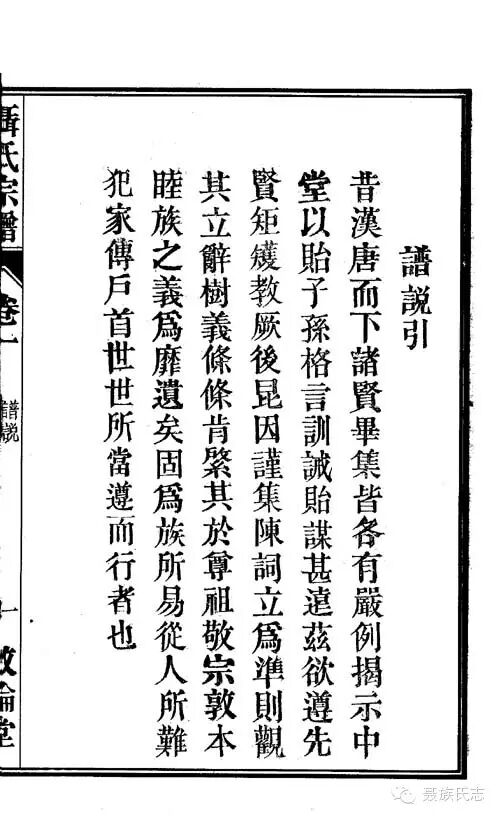 譜説引
昔漢唐而下諸賢畢集皆各有嚴例揭示中
堂以貽子孫格言訓誡貽謀甚遠茲欲遵先
賢矩矱教厥後昆因謹集陳詞立爲準則觀
其立辭樹義條條肯綮其於尊祖敬宗敦本
睦族之義爲靡遺矣固爲族所易從人所難
犯家傳戶首世世所當遵而行者也
聶氏宗譜
卷一
譜説
一
敦倫堂
聂族氏志